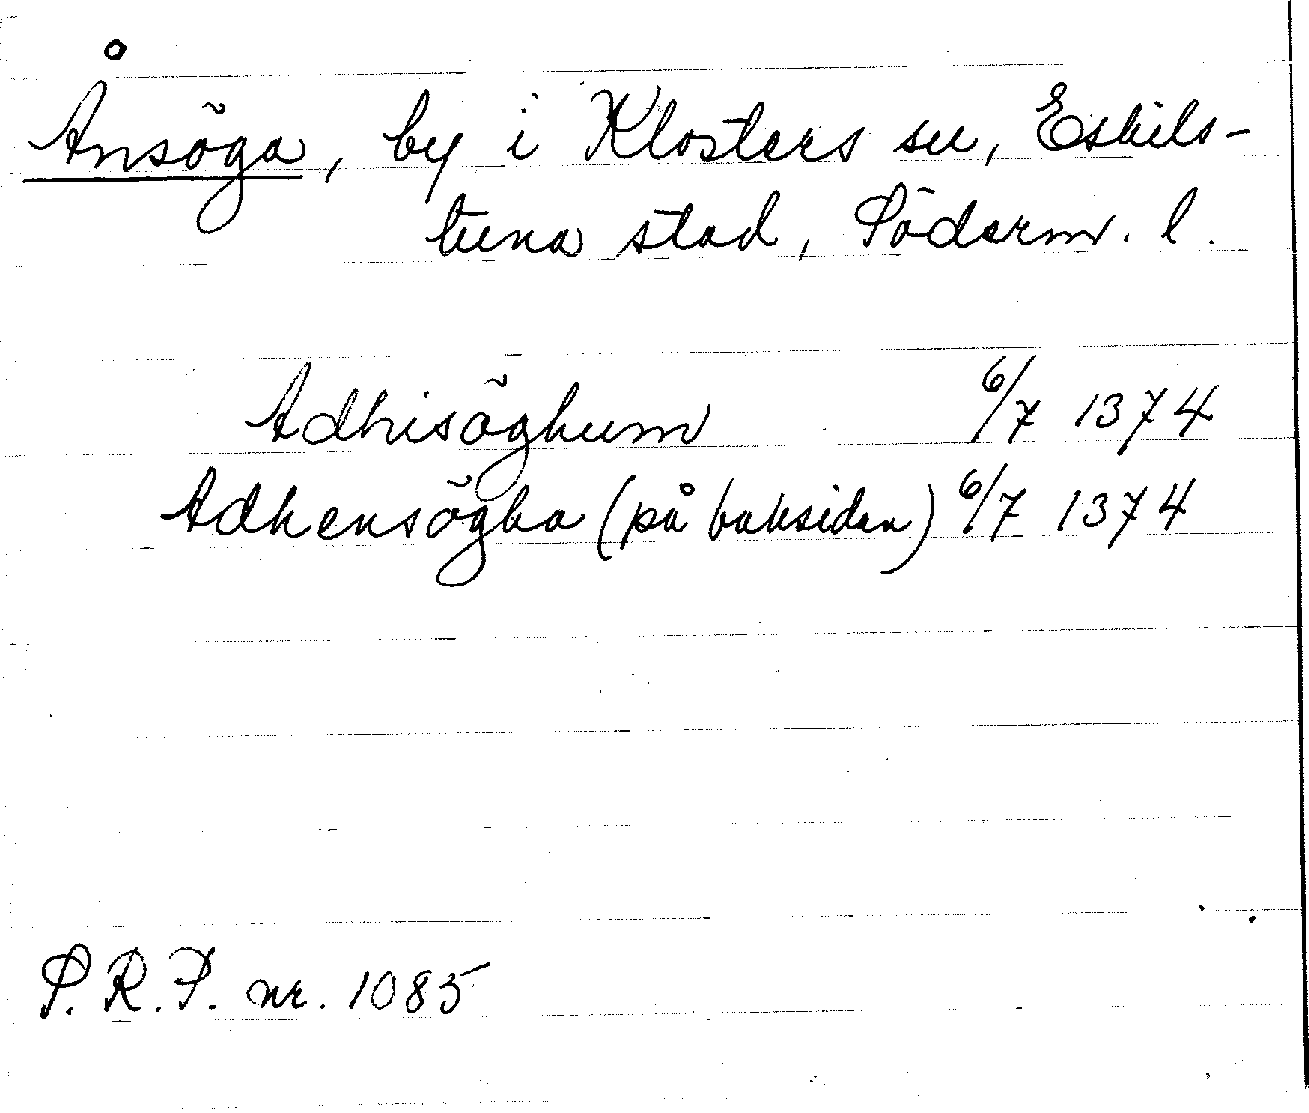 Ånsöga, by i Klosters sn, Eskils-
tuna stad, Söderm. l.
Adhisöghum 6/7 1374
Adhensögha (på baksidan) 6/7 1374
S.R.P. nr. 1085